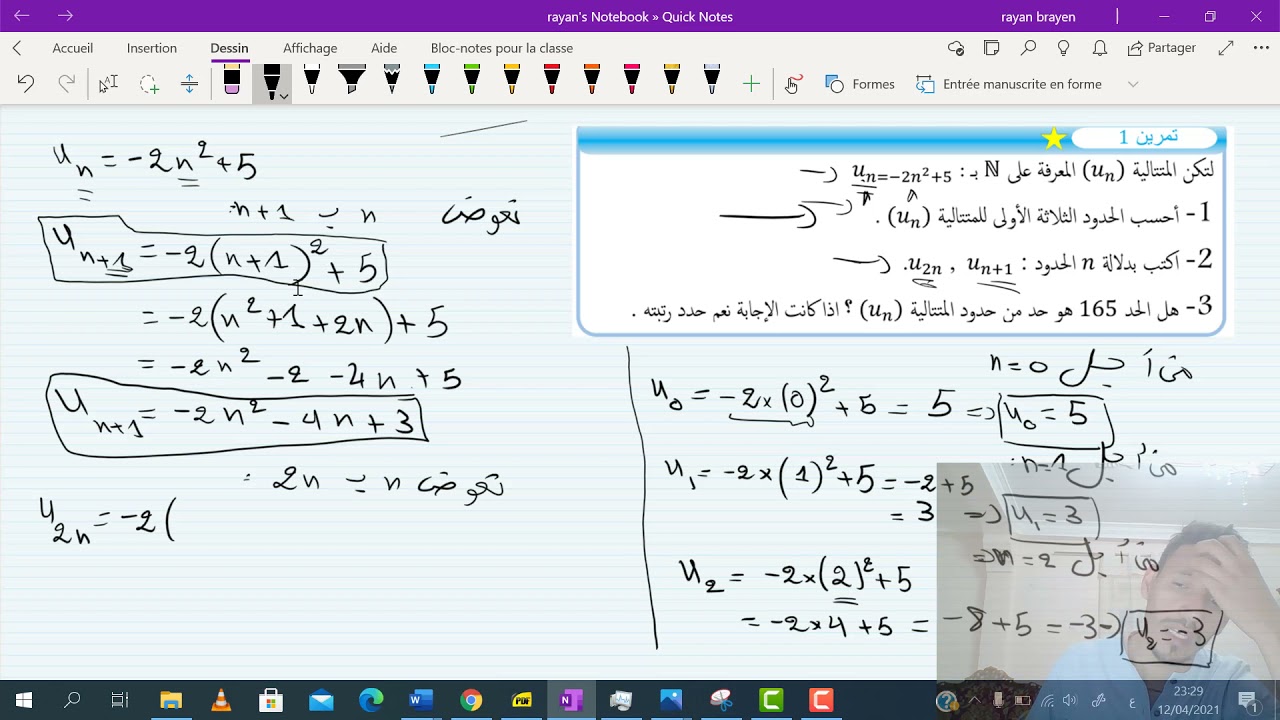 rayan's Notebook » Quick Notes
rayan brayen
Accueil Insertion Dessin Affichage Aide Bloc-notes pour la classe
Partager
Formes
Entrée manuscrite en forme
تمرين 1
لتكن المتتالية (uₙ) المعرفة على ℕ بـ : uₙ=−2n²+5
1- أحسب الحدود الثلاثة الأولى للمتتالية (uₙ) .
2- اكتب بدلالة n الحدود : uₙ₊₁ , u₂ₙ.
3- هل الحد 165 هو حد من حدود المتتالية (uₙ) ؟ اذا كانت الإجابة نعم حدد رتبته .
uₙ = -2n² + 5
نعوض n بـ n+1 :
uₙ₊₁ = -2(n+1)² + 5
= -2(n² + 1 + 2n) + 5
= -2n² - 2 - 4n + 5
uₙ₊₁ = -2n² - 4n + 3
نعوض n بـ 2n :
u₂ₙ = -2(
من أجل n = 0
u₀ = -2×(0)² + 5 = 5 => u₀ = 5
من أجل n=1 :
u₁ = -2×(1)² + 5 = -2 + 5
= 3 => u₁ = 3
من أجل n = 2
u₂ = -2×(2)² + 5
= -2×4 + 5 = -8 + 5 = -3 => u₂ = -3
23:29
12/04/2021